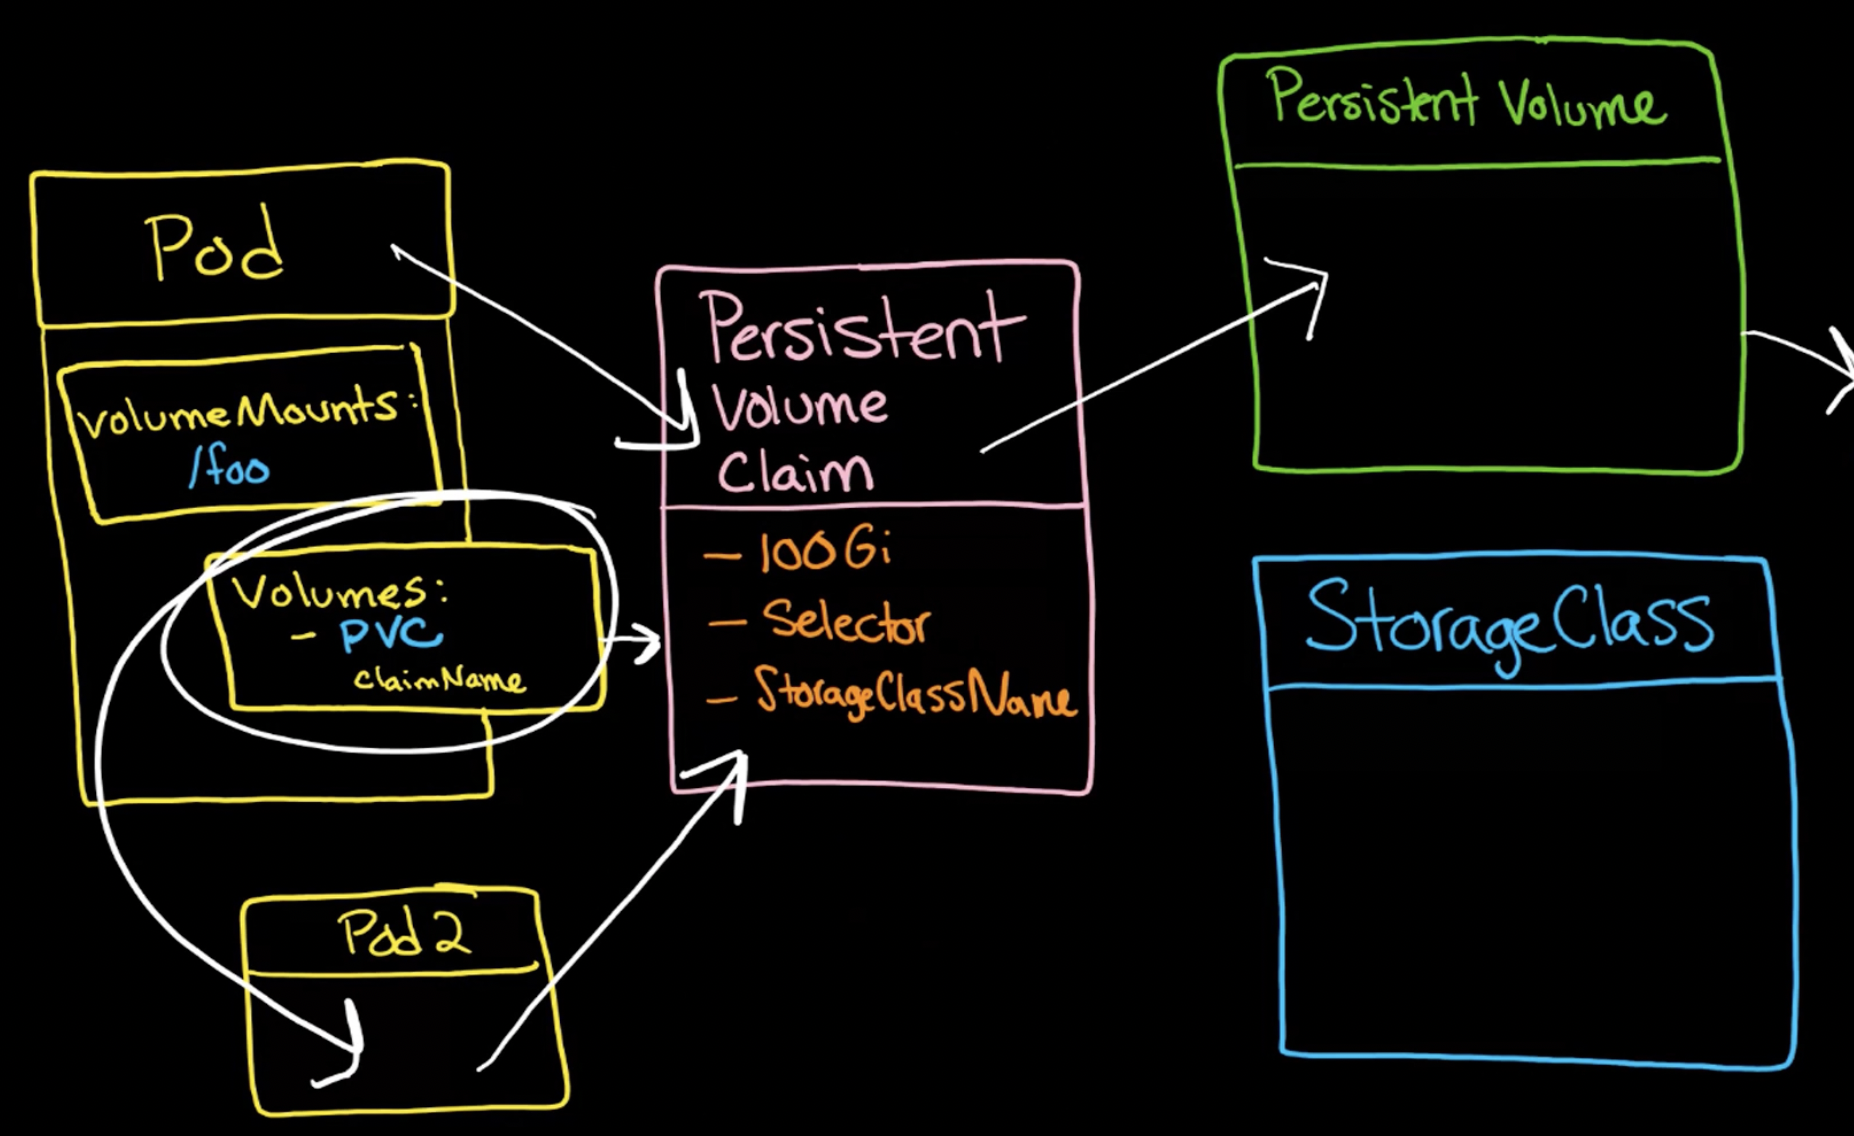 Pod
volumeMounts:
/foo
Volumes:
- PVC
claimName
Pod 2
Persistent
Volume
Claim
- 100Gi
- Selector
- StorageClassName
Persistent Volume
StorageClass